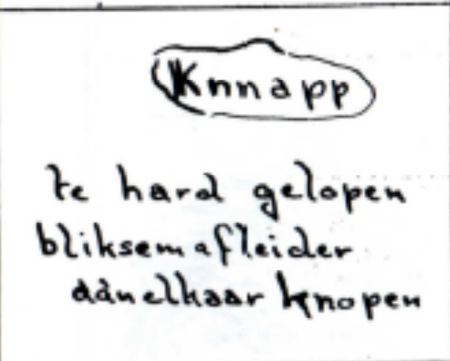 Knnapp
te hard gelopen
bliksemafleider
aànelkaar knopen